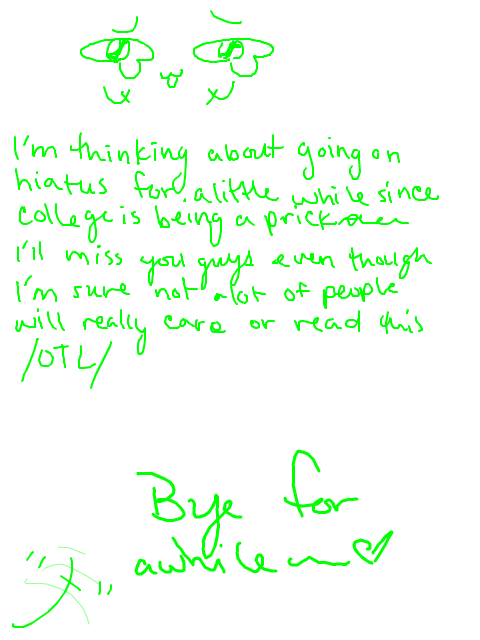 I'm thinking about going on
hiatus for a little while since
college is being a prick
I'll miss you guys even though
I'm sure not alot of people
will really care or read this
/OTL/
Bye for
awhile ~♡